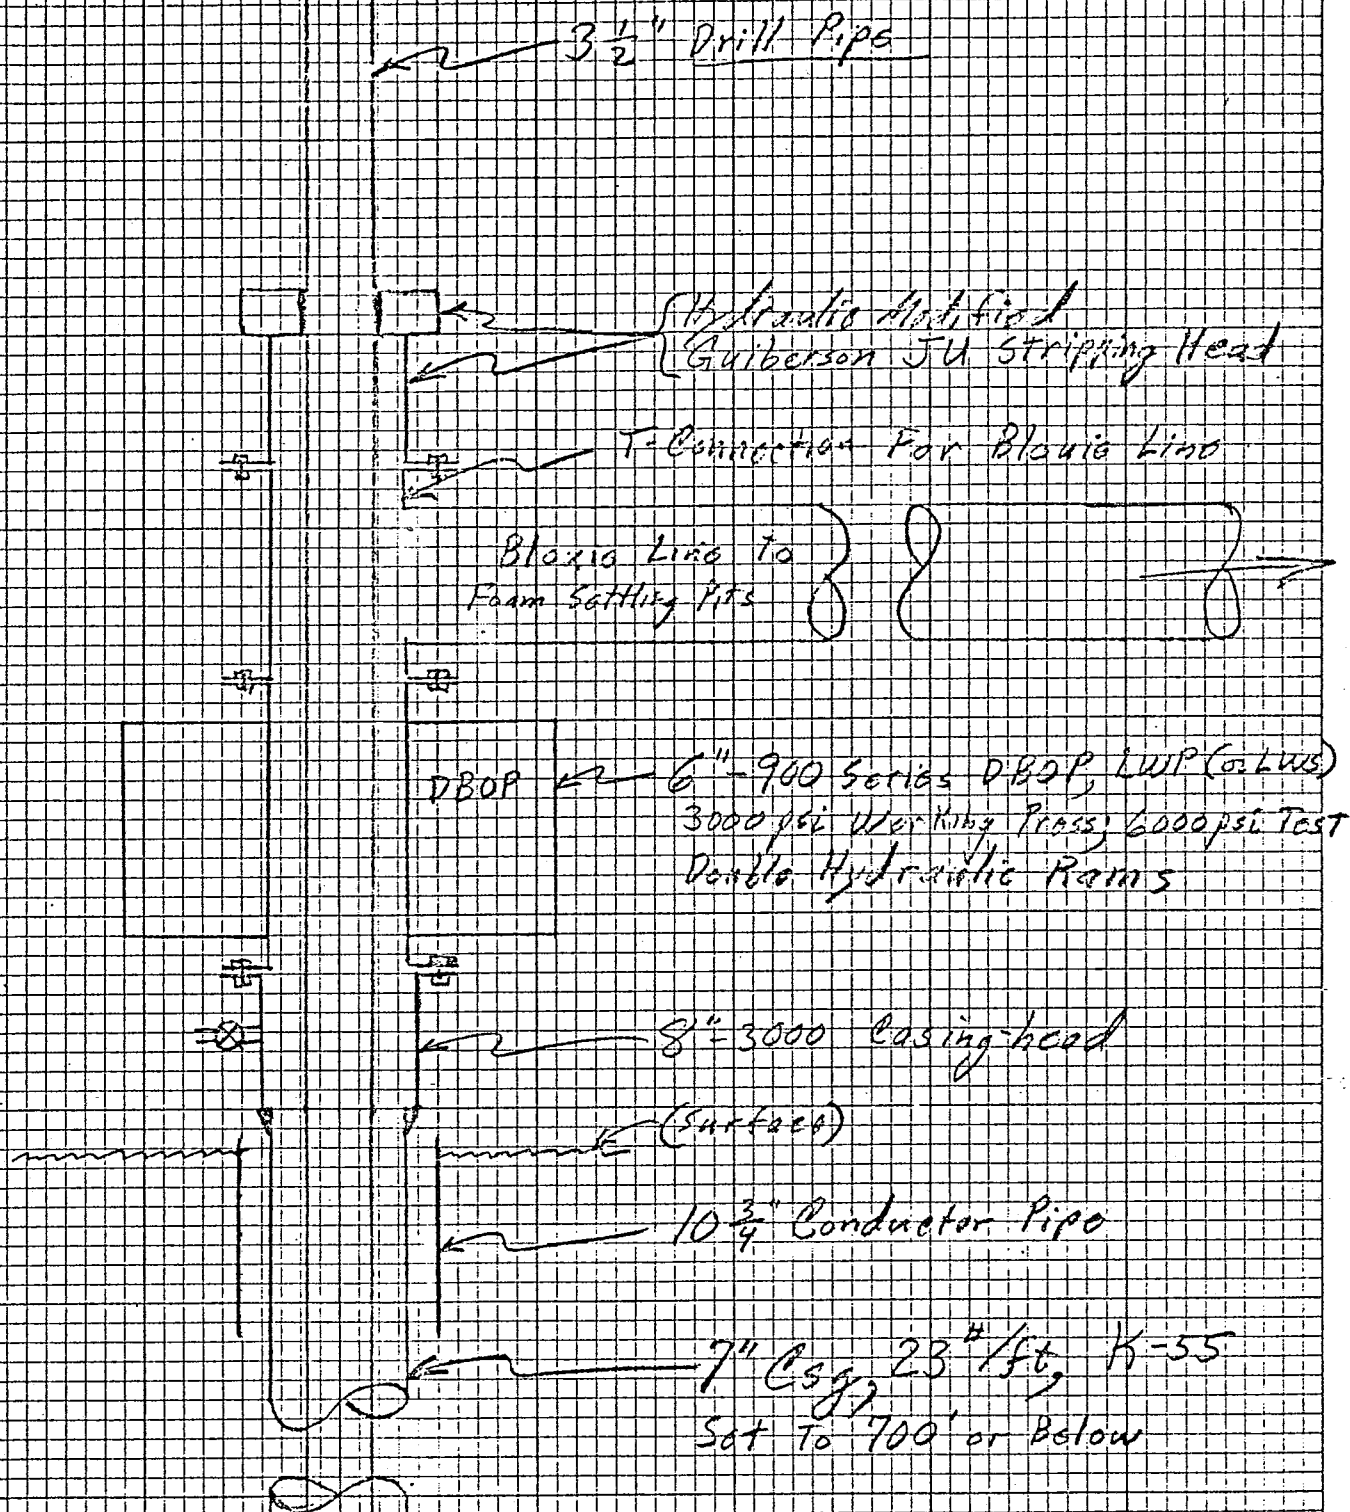 3 1/2" Drill Pipe
Hydraulic Modified
Guiberson JU Stripping Head
T-Connection For Blouie Line
Blouie Line to
Foam Settling Pits
DBOP
6"-900 Series DBOP, LWP (or LWS)
3000 psi Working Press; 6000 psi Test
Double Hydraulic Rams
8"-3000 Casing-head
(Surface)
10 3/4" Conductor Pipe
7" Csg, 23#/ft, K-55
Set To 700' or Below